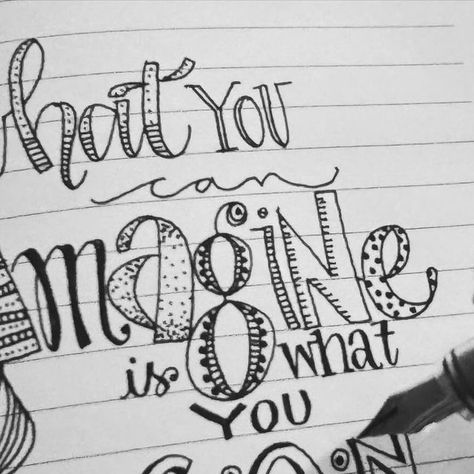 what YOU
can
ImagiNe
is what
YOU